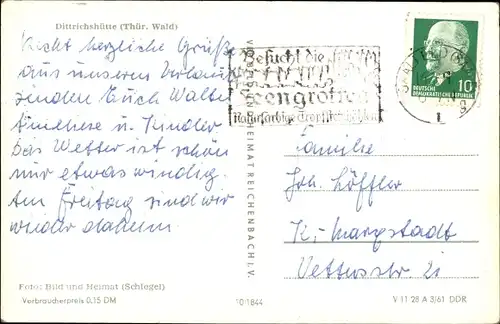 Dittrichshütte (Thür. Wald)
Recht herzliche Grüße
aus unserem Urlaub
senden Euch Walter
u. Kinder
Das Wetter ist schön
nur etwas windig.
Am Freitag sind wir
wieder daheim
Foto: Bild und Heimat (Schlegel)
Verbraucherpreis 0,15 DM
10 1844
HEIMAT REICHENBACH I. V.
Besucht die
Feengrotten
Naturfarbige
10
DEUTSCHE
DEMOKRATISCHE REPUBLIK
Familie
Joh. Löffler
K.-Marxstadt
21
V 11 28 A 3/61 DDR